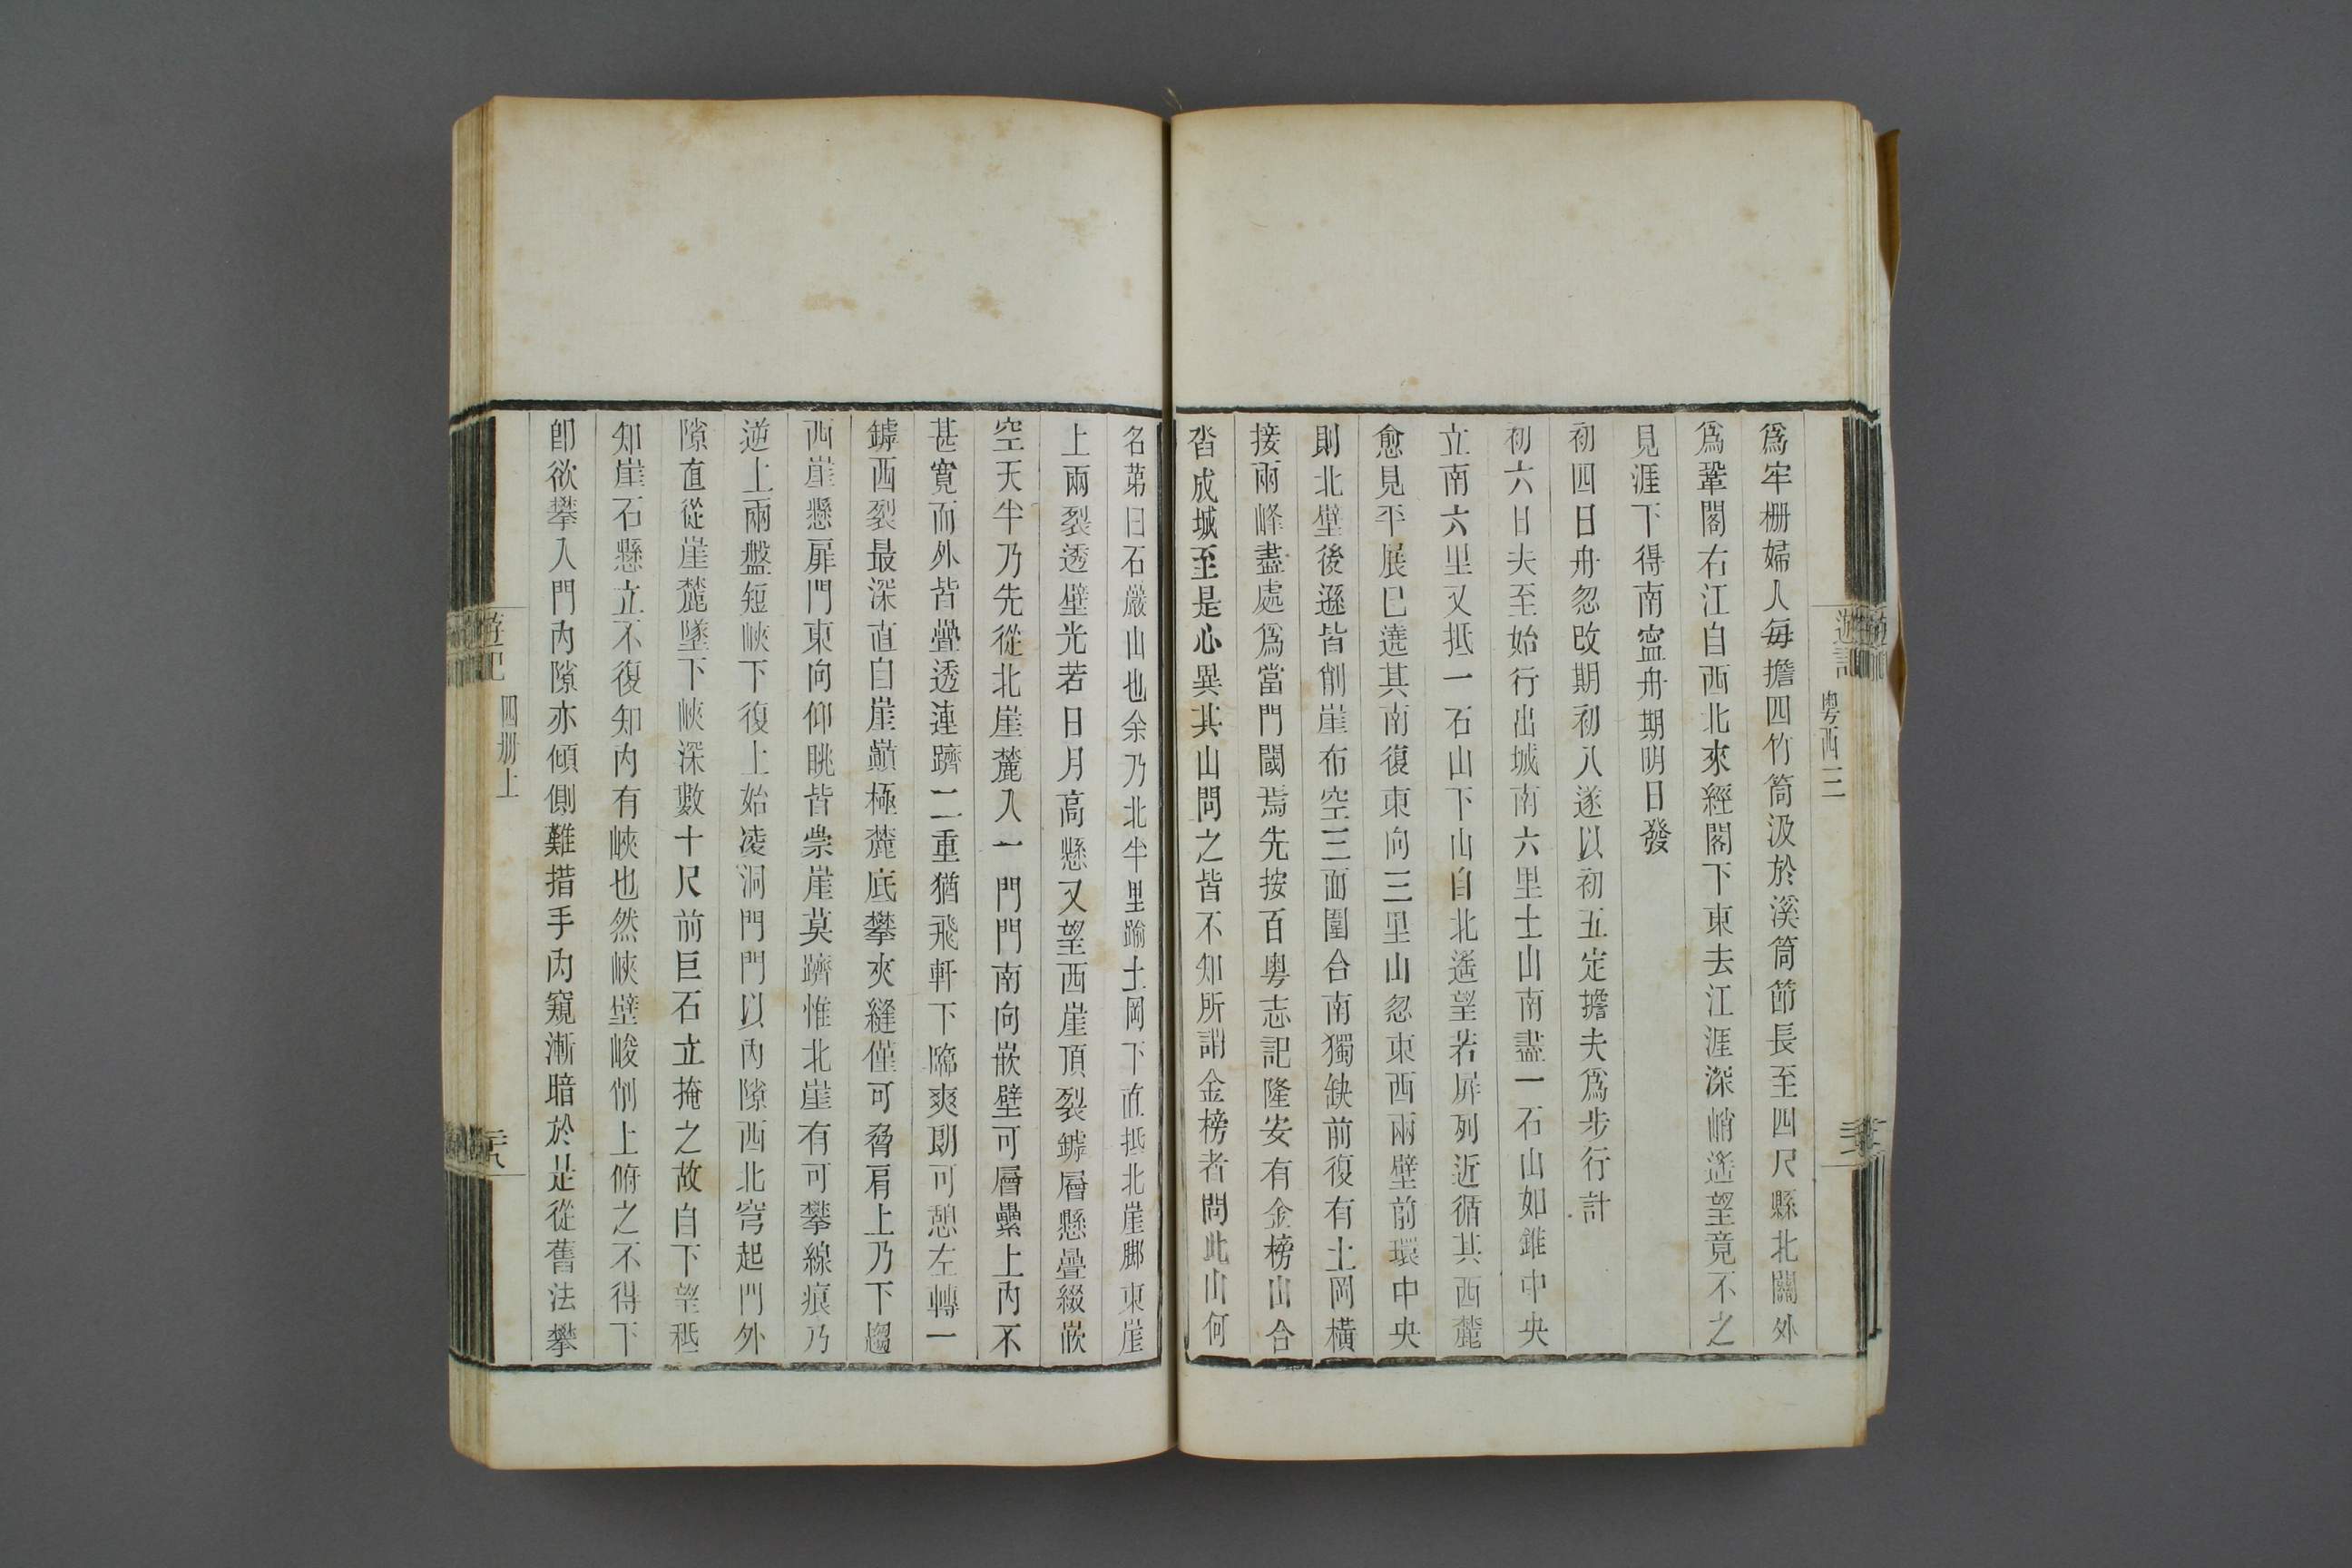 遊記
粵西三
為牢柵婦人每擔四竹筒汲於溪筒節長至四尺縣北關外
為鞏閣右江自西北來經閣下東去江涯深峭遙望竟不之
見涯下得南寍舟期明日發
初四日舟忽改期初八遂以初五定擔夫為步行計
初六日夫至始行出城南六里土山南盡一石山如錐中央
立南六里又抵一石山下山自北遙望若屏列近循其西麓
愈見平展已遶其南復東向三里山忽東西兩壁前環中央
則北壁後遜皆削崖布空三面圍合南獨缺前復有土岡橫
接兩峰盡處為當門閾焉先按百粵志記隆安有金榜山合
沓成城至是心異其山問之皆不知所謂金榜者問此山何
名第曰石巖山也余乃北半里踰土岡下直抵北崖腳東崖
上兩裂透壁光若日月高懸又望西崖頂裂罅層懸疊綴嵌
空天半乃先從北崖麓入一門門南向嵌壁可層纍上內不
甚寬而外皆疊透連躋二重猶飛軒下臨爽朗可憩左轉一
罅西裂最深直自崖巔極麓底攀夾縫僅可脅肩上乃下趨
西崖懸扉門東向仰眺皆崇崖莫躋惟北崖有可攀線痕乃
逆上兩盤短峽下復上始凌洞門門以內隙西北穹起門外
隙直從崖麓墜下峽深數十尺前巨石立掩之故自下望秪
知崖石懸立不復知內有峽也然峽壁峻削上俯之不得下
卽欲攀入門內隙亦傾側難措手內窺漸暗於是從舊法攀
遊記
四册上